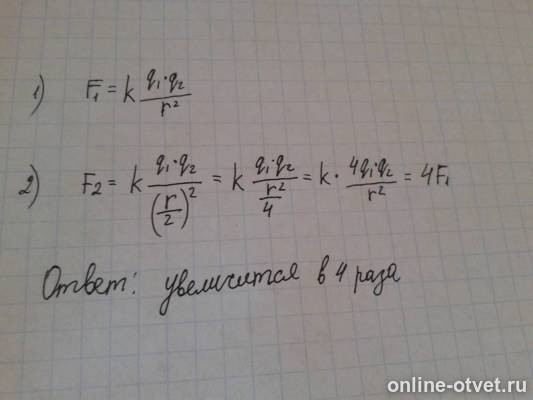 1) F₁ = k (q₁·q₂)/r²
2) F₂ = k (q₁·q₂)/(r/2)² = k (q₁·q₂)/(r²/4) = k · (4q₁·q₂)/r² = 4F₁
Ответ: увеличится в 4 раза
online-otvet.ru